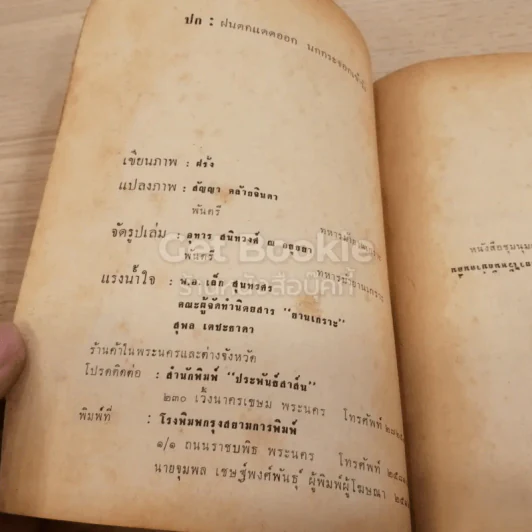 ปก : ฝนตกแดดออก นกกระจอก
เขียนภาพ : ฝรั่ง
แปลงภาพ : สัญญา คล้ายจินดา
พันตรี
จัดรูปเล่ม : อุทาร สนิทวงศ์ ณ อยุธยา
พันตรี
ทหารม้ายานเกราะ
แรงน้ำใจ : พ.อ. เล็ก สุนทรศร
คณะผู้จัดทำนิตยสาร "ยานเกราะ"
สุพล เตชะธาดา
ร้านค้าในพระนครและต่างจังหวัด
โปรดติดต่อ : สำนักพิมพ์ "ประพันธ์สาส์น"
๒๓๐ เวิ้งนาครเขษม พระนคร โทรศัพท์
พิมพ์ที่ : โรงพิมพ์กรุงสยามการพิมพ์
๑/๑ ถนนราชบพิธ พระนคร โทรศัพท์
นายจุมพล เชษฐ์พงศ์พันธุ์ ผู้พิมพ์ผู้โฆษณา
หนังสือชุมนุม
Get Bookie
ร้านหนังสือบุ๊คกี้